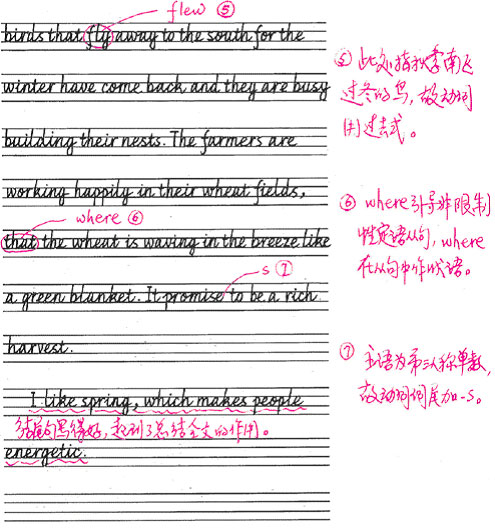 flew ⑤
birds that fly away to the south for the
winter have come back and they are busy
building their nests. The farmers are
working happily in their wheat fields,
where ⑥
that the wheat is waving in the breeze like
s ⑦
a green blanket. It promise to be a rich
harvest.
I like spring, which makes people
结尾句写得好，起到了总结全文的作用。
energetic.
⑤ 此处指秋季南飞
过冬的鸟，故动词
用过去式。
⑥ where引导非限制
性定语从句，where
在从句中作状语。
⑦ 主语为第三人称单数，
故动词词尾加-s。